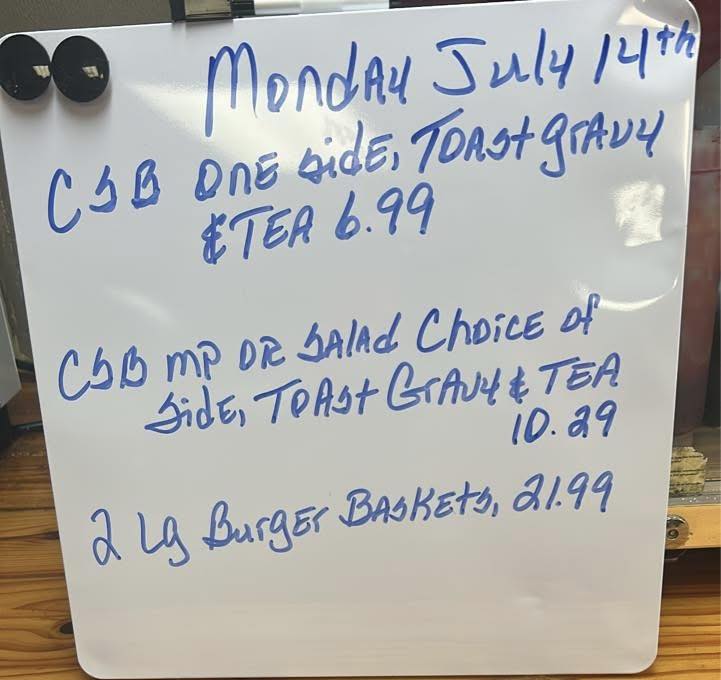 Monday July 14th
CSB one side, Toast gravy
& TEA 6.99
CSB mp OR Salad Choice of
Side, Toast Gravy & TEA
10.29
2 Lg Burger Baskets, 21.99